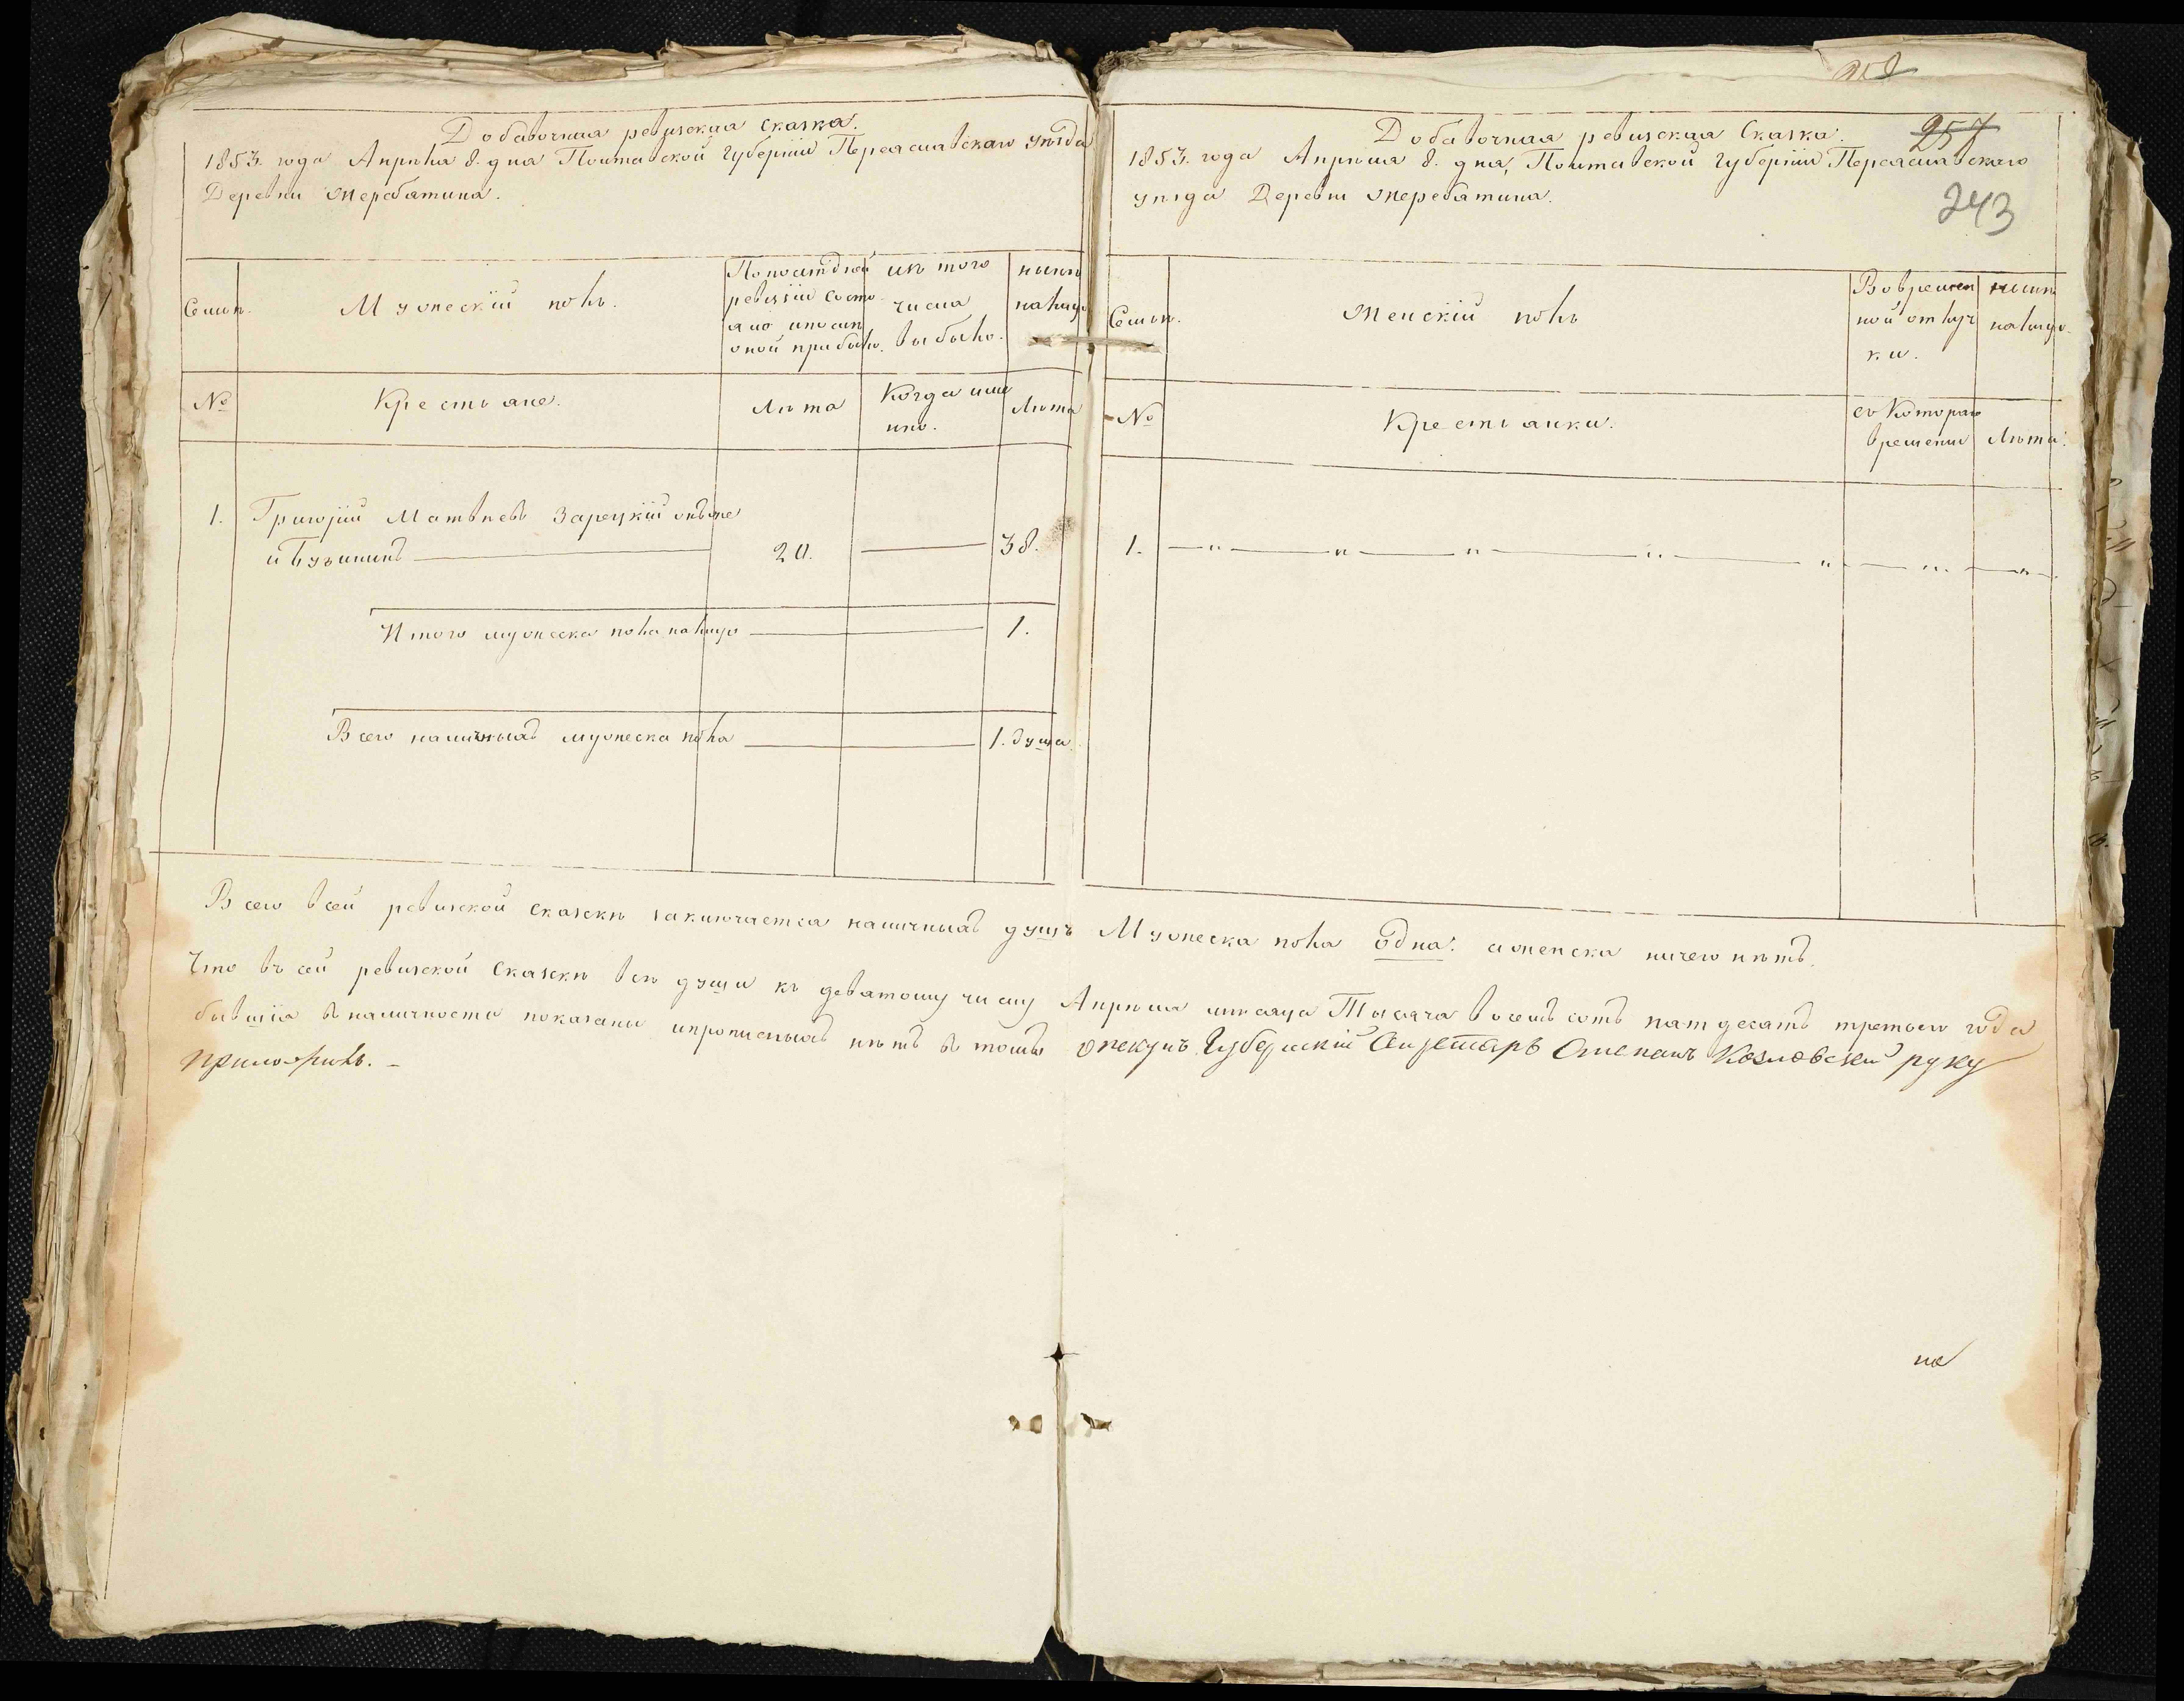 Добавочная ревизская сказка.
1853. года Апрѣля 8. дня Полтавской Губерніи Переяславскаго уѣзда
Деревни Жеребятина.
Семьи.
Мужескій полъ.
По последней
ревизіи состо-
яло и после
оной прибыло.
изъ того
числа
выбыло.
нынѣ
налицо
№
Крестьяне.
Лѣта
Когда име
нно.
Лѣта
1. Григорій Матвѣевъ Зарецкій онъ же
и Бузининъ 20. 38.
Итого мужеска пола налицо 1.
Всего наличныхъ мужеска пола 1. душа.
257
243
Добавочная ревизская Сказка.
1853. года Апрѣля 8. дня, Полтавской Губерніи Переяславскаго
уѣзда Деревни Жеребятина.
Семьи.
Женскій полъ
Во времен
ной отлуч
ки.
нынѣ
налицо.
№
Крестьянки.
съ Котораго
времени
Лѣта.
1. — " — " — " — " — " — " — " —
Всего всей ревизской сказки заключается наличныхъ душъ Мужеска пола Одна. а женска ничего нѣтъ.
Что въ сей ревизской Сказки всѣ души къ девятому числу Апрѣля мѣсяца Тысяча восемь сотъ пятдесятъ третьего года
бывшіа въ наличности показаны и прописныхъ нѣтъ въ томъ опекунъ Губернскій Секретарь Степанъ Козловскій руку
приложилъ. -